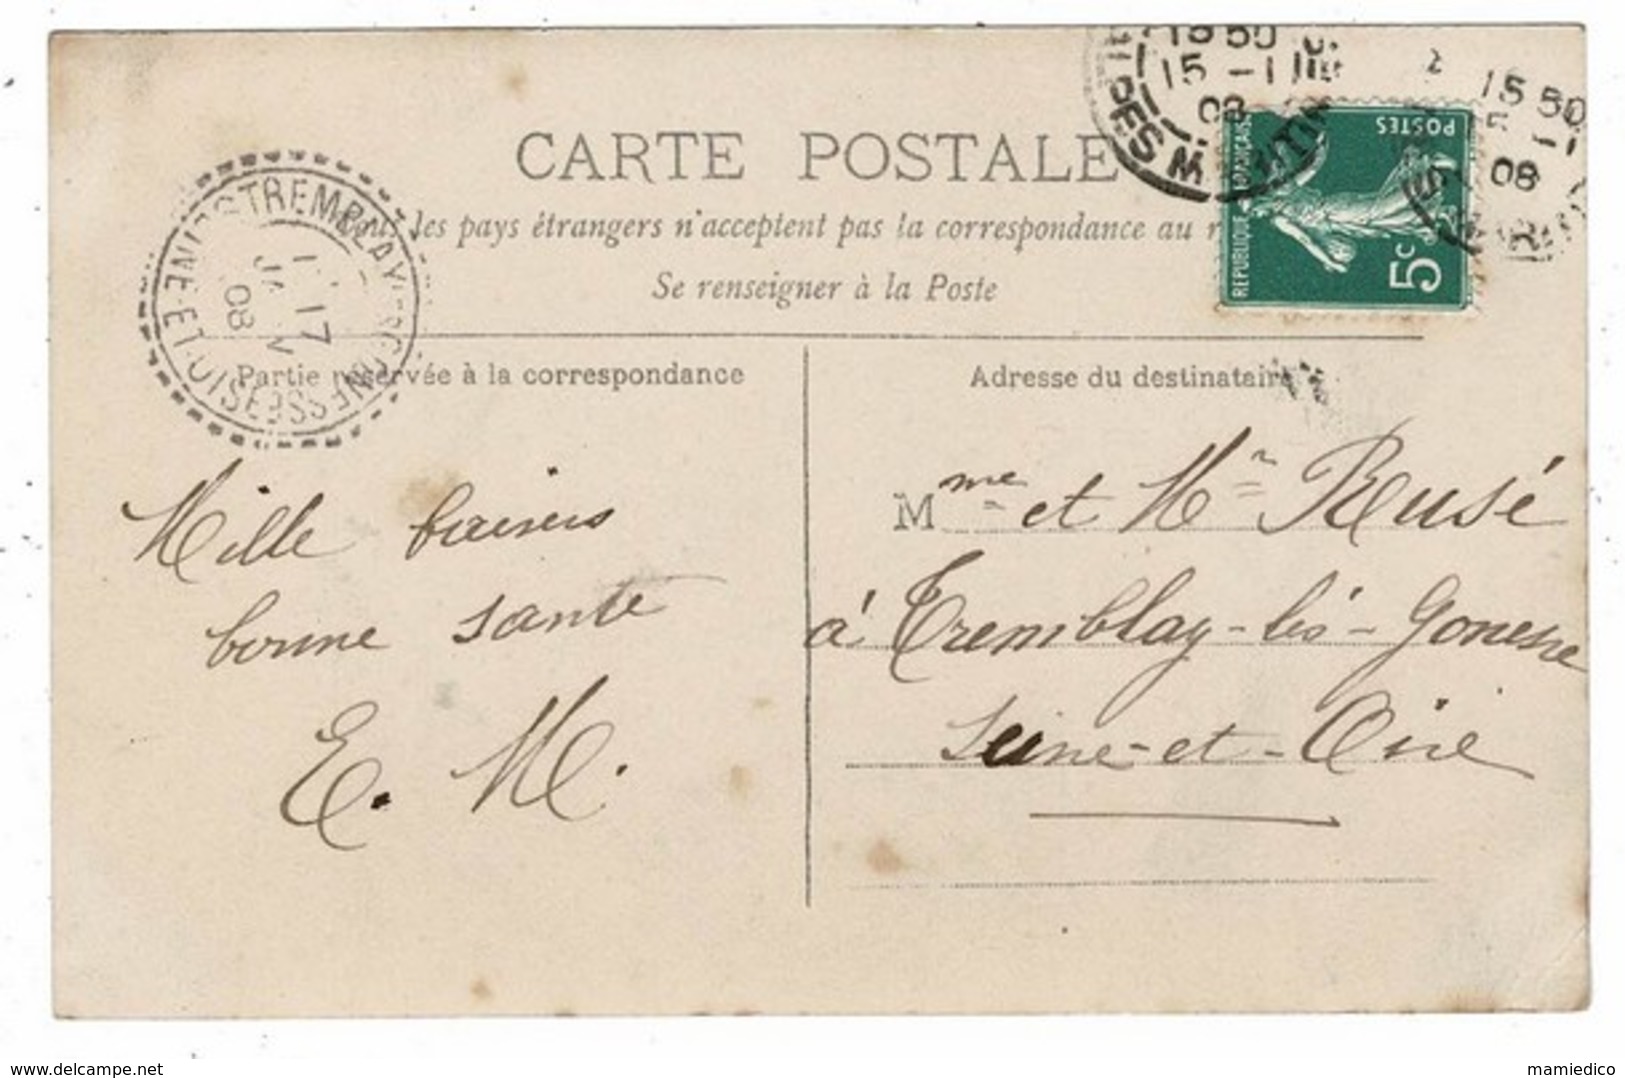 CARTE POSTALE
Tous les pays étrangers n'acceptent pas la correspondance au
Se renseigner à la Poste
Partie réservée à la correspondance
Adresse du destinataire
Mille baisers
bonne santé
E. M.
Mme et Mr Rusé
à Tremblay-lès-Gonesse
Seine-et-Oise
REPUBLIQUE FRANÇAISE
POSTES
5c
15 50
15 -1
08
15 50
5 -1
08
TREMBLAY-LES-GONESSE
SEINE-ET-OISE
17
JANV
08
delcampe.net
mamiedico